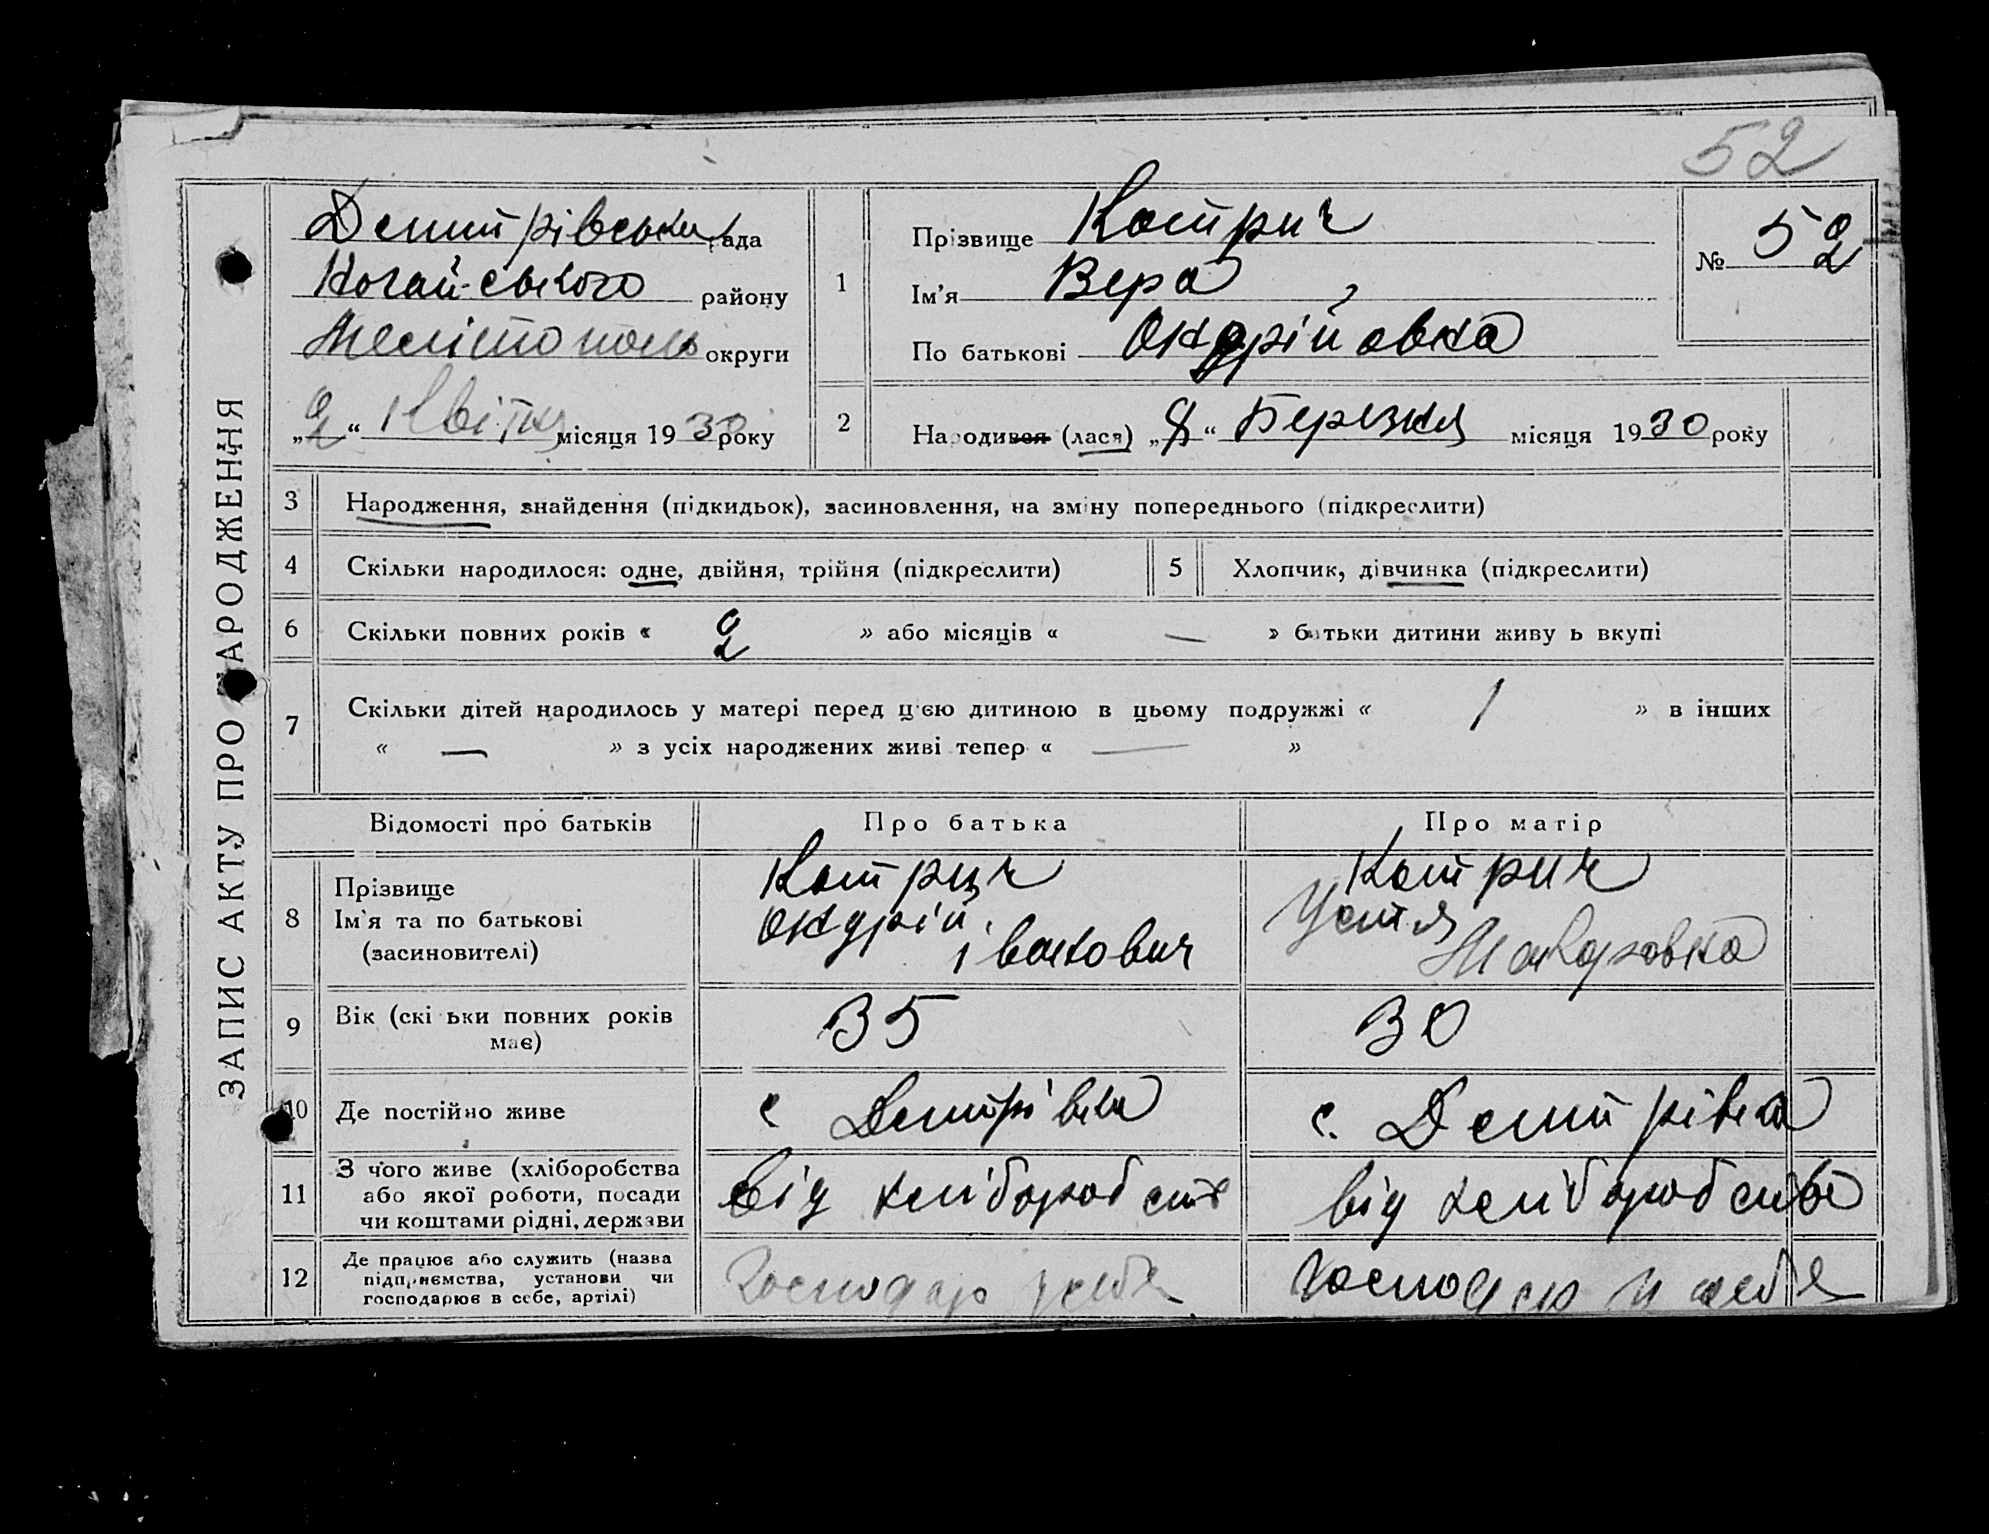 52
ЗАПИС АКТУ ПРО НАРОДЖЕННЯ
Дмитрівська рада
Ногайського району
Мелітополь округи
„2“ Квітня місяця 1930 року
1
Прізвище Котрич
Ім'я Вера
По батькові Андрійовна
№ 52
2
Народився (лася) „ “ Березня місяця 1930 року
3 Народження, знайдення (підкидьок), засиновлення, на зміну попереднього (підкреслити)
4 Скільки народилося: одне, двійня, трійня (підкреслити)
5 Хлопчик, дівчинка (підкреслити)
6 Скільки повних років « 2 » або місяців « — » батьки дитини живуть вкупі
7 Скільки дітей народилось у матері перед цією дитиною в цьому подружжі « 1 » в інших
« — » з усіх народжених живі тепер « — »
Відомості про батьків
Про батька
Про матір
8
Прізвище
Ім'я та по батькові
(засиновителі)
Котрич
Андрій
Іванович
Котрич
Устя
Макаровна
9
Вік (скільки повних років
має)
35
30
10 Де постійно живе
с Дмитрівка
с. Дмитрівка
11
З чого живе (хліборобства
або якої роботи, посади
чи коштами рідні, держави
від хліборобств
від хліборобства
12
Де працює або служить (назва
підприємства, установи чи
господарює в себе, артілі)
Господар у себе
Господар у себе